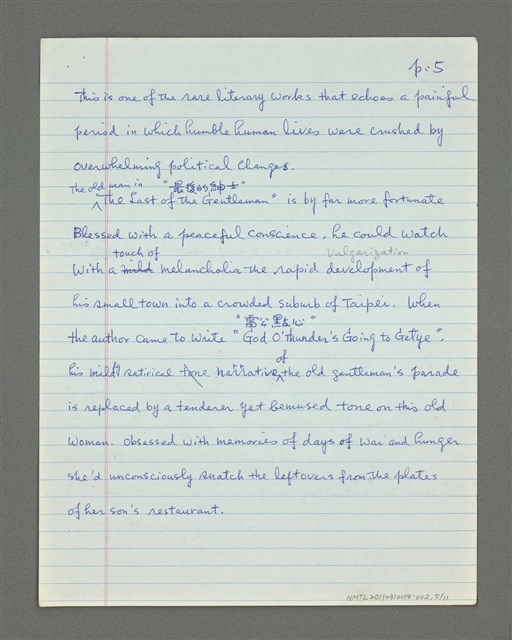 p.5
This is one of the rare literary works that echoes a painful
period in which humble human lives were crushed by
overwhelming political changes.
The old man in "最後的紳士"
"The Last of The Gentleman" is by far more fortunate
Blessed with a peaceful conscience, he could watch
touch of vulgarization
With a mild melancholia the rapid development of
his small town into a crowded suburb of Taipei. When
"雷公點心"
the author came to write "God O'thunder's Going to Getye".
of
his mild satirical tone narrative the old gentleman's parade
is replaced by a tenderer yet bemused tone on this old
woman. Obsessed with memories of days of war and hunger
she'd unconsciously snatch the leftovers from the plates
of her son's restaurant.
NMTL20110310019-002, 5/11